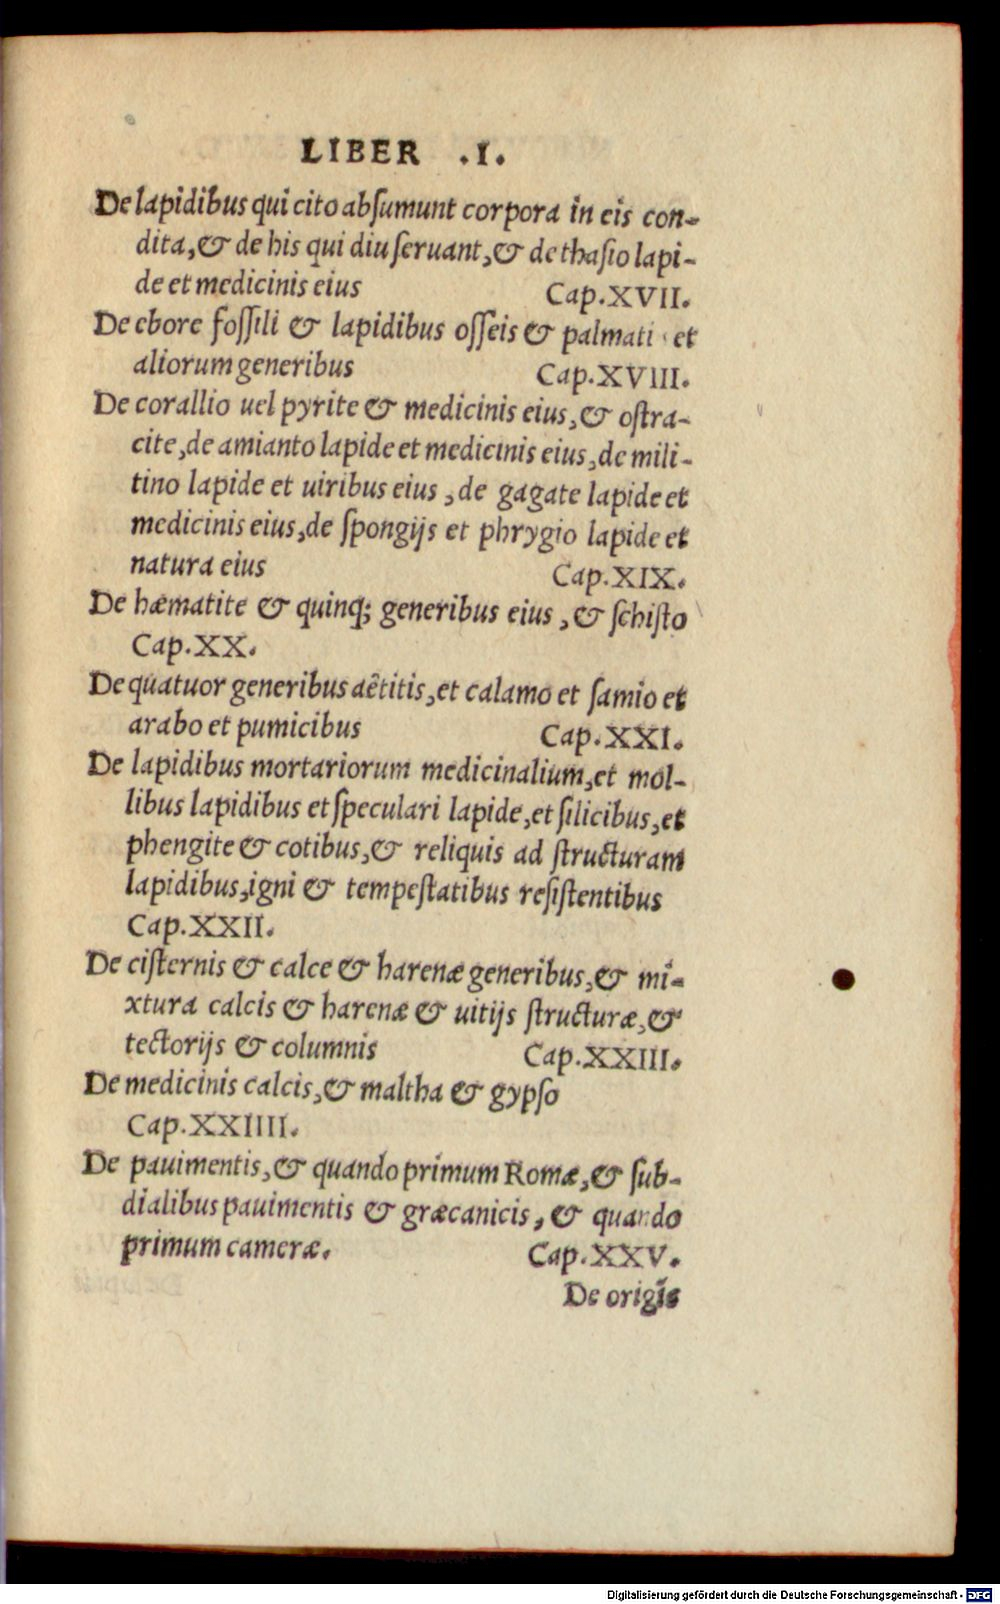 LIBER .I.
De lapidibus qui cito absumunt corpora in eis con-
dita, & de his qui diu seruant, & de thasio lapi-
de et medicinis eius Cap.XVII.
De ebore fossili & lapidibus osseis & palmati et
aliorum generibus Cap.XVIII.
De corallio uel pyrite & medicinis eius, & ostra-
cite, de amianto lapide et medicinis eius, de mili-
tino lapide et uiribus eius, de gagate lapide et
medicinis eius, de spongijs et phrygio lapide et
natura eius Cap.XIX.
De hæmatite & quinq; generibus eius, & schisto
Cap.XX.
De quatuor generibus aëtitis, et calamo et samio et
arabo et pumicibus Cap.XXI.
De lapidibus mortariorum medicinalium, et mol-
libus lapidibus et speculari lapide, et silicibus, et
phengite & cotibus, & reliquis ad structuram
lapidibus, igni & tempestatibus resistentibus
Cap.XXII.
De cisternis & calce & harenæ generibus, & mi-
xtura calcis & harenæ & uitijs structuræ, &
tectorijs & columnis Cap.XXIII.
De medicinis calcis, & maltha & gypso
Cap.XXIIII.
De pauimentis, & quando primum Romæ, & sub-
dialibus pauimentis & græcanicis, & quando
primum cameræ. Cap.XXV.
De origīs
Digitalisierung gefördert durch die Deutsche Forschungsgemeinschaft - DFG